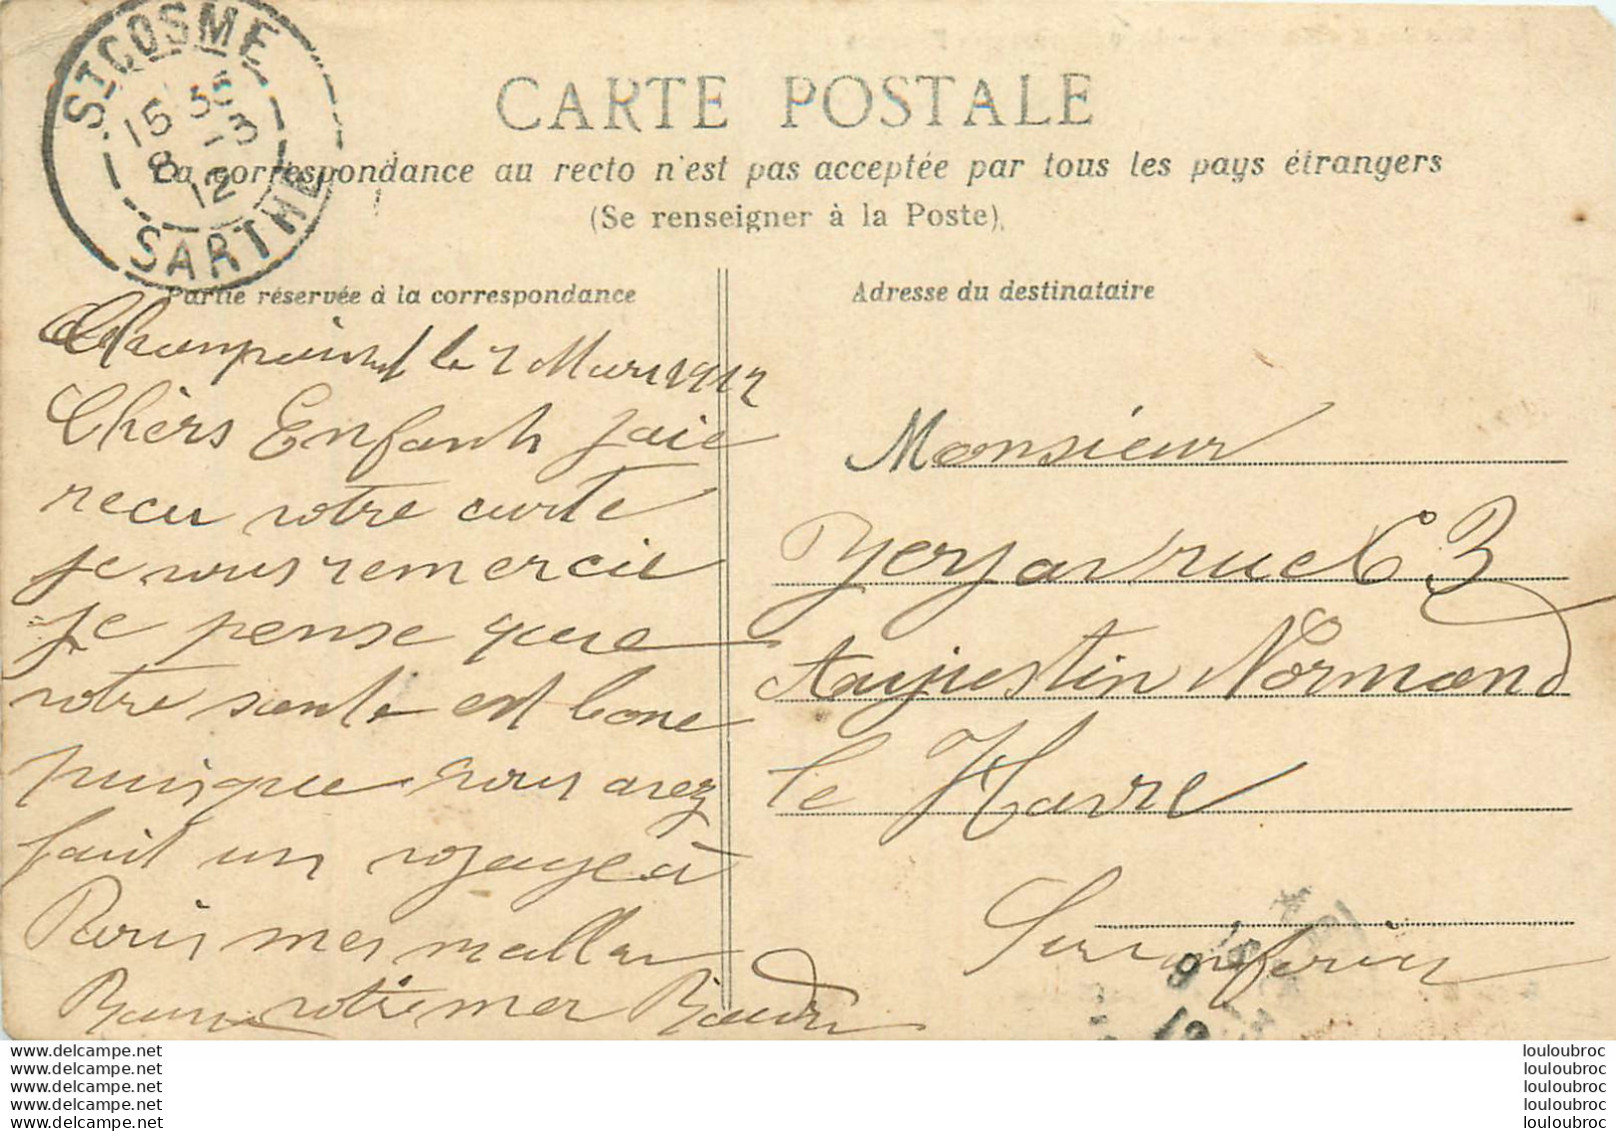 ST COSME
15 35
8 -3
12
SARTHE
CARTE POSTALE
La correspondance au recto n'est pas acceptée par tous les pays étrangers
(Se renseigner à la Poste).
Partie réservée à la correspondance
le 7 Mars 1912
Chèrs Enfants jaie
recu votre carte
je vous remercie
je pense que
votre santé est bone
puisque vous avez
fait un voyage à
Paris mes
votre mer
Adresse du destinataire
Monsieur
rue 63
Augustin Normand
le Havre
Seine inferieur
www.delcampe.net
www.delcampe.net
www.delcampe.net
www.delcampe.net
www.delcampe.net
louloubroc
louloubroc
louloubroc
louloubroc
louloubroc